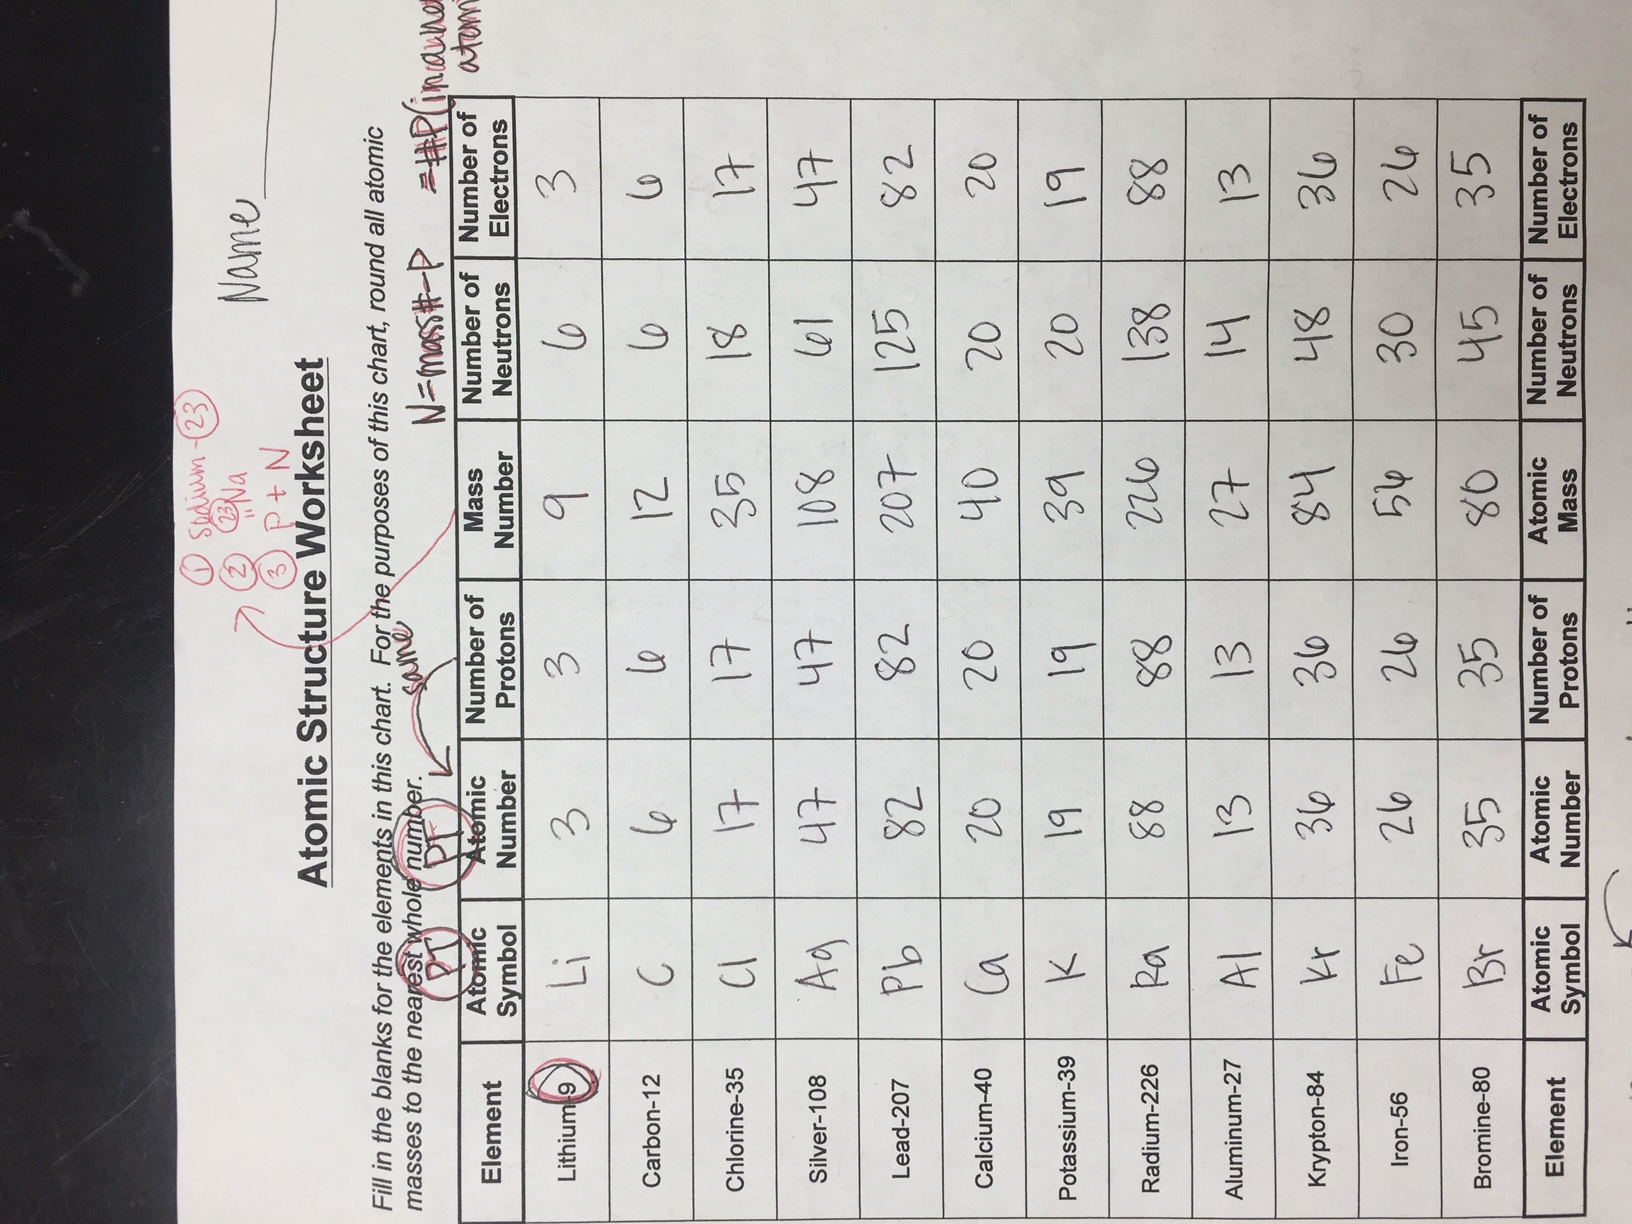 Name
① Sodium-23
② 23 Na
③ P + N
Atomic Structure Worksheet
Fill in the blanks for the elements in this chart. For the purposes of this chart, round all atomic
masses to the nearest whole number.
same
PT PT N=mass#-P =#P(in a
atom
Element Atomic Symbol Atomic Number Number of Protons Mass Number Number of Neutrons Number of Electrons
Lithium-9 Li 3 3 9 6 3
Carbon-12 C 6 6 12 6 6
Chlorine-35 Cl 17 17 35 18 17
Silver-108 Ag 47 47 108 61 47
Lead-207 Pb 82 82 207 125 82
Calcium-40 Ca 20 20 40 20 20
Potassium-39 K 19 19 39 20 19
Radium-226 Ra 88 88 226 138 88
Aluminum-27 Al 13 13 27 14 13
Krypton-84 Kr 36 36 84 48 36
Iron-56 Fe 26 26 56 30 26
Bromine-80 Br 35 35 80 45 35
Element Atomic Symbol Atomic Number Number of Protons Atomic Mass Number of Neutrons Number of Electrons